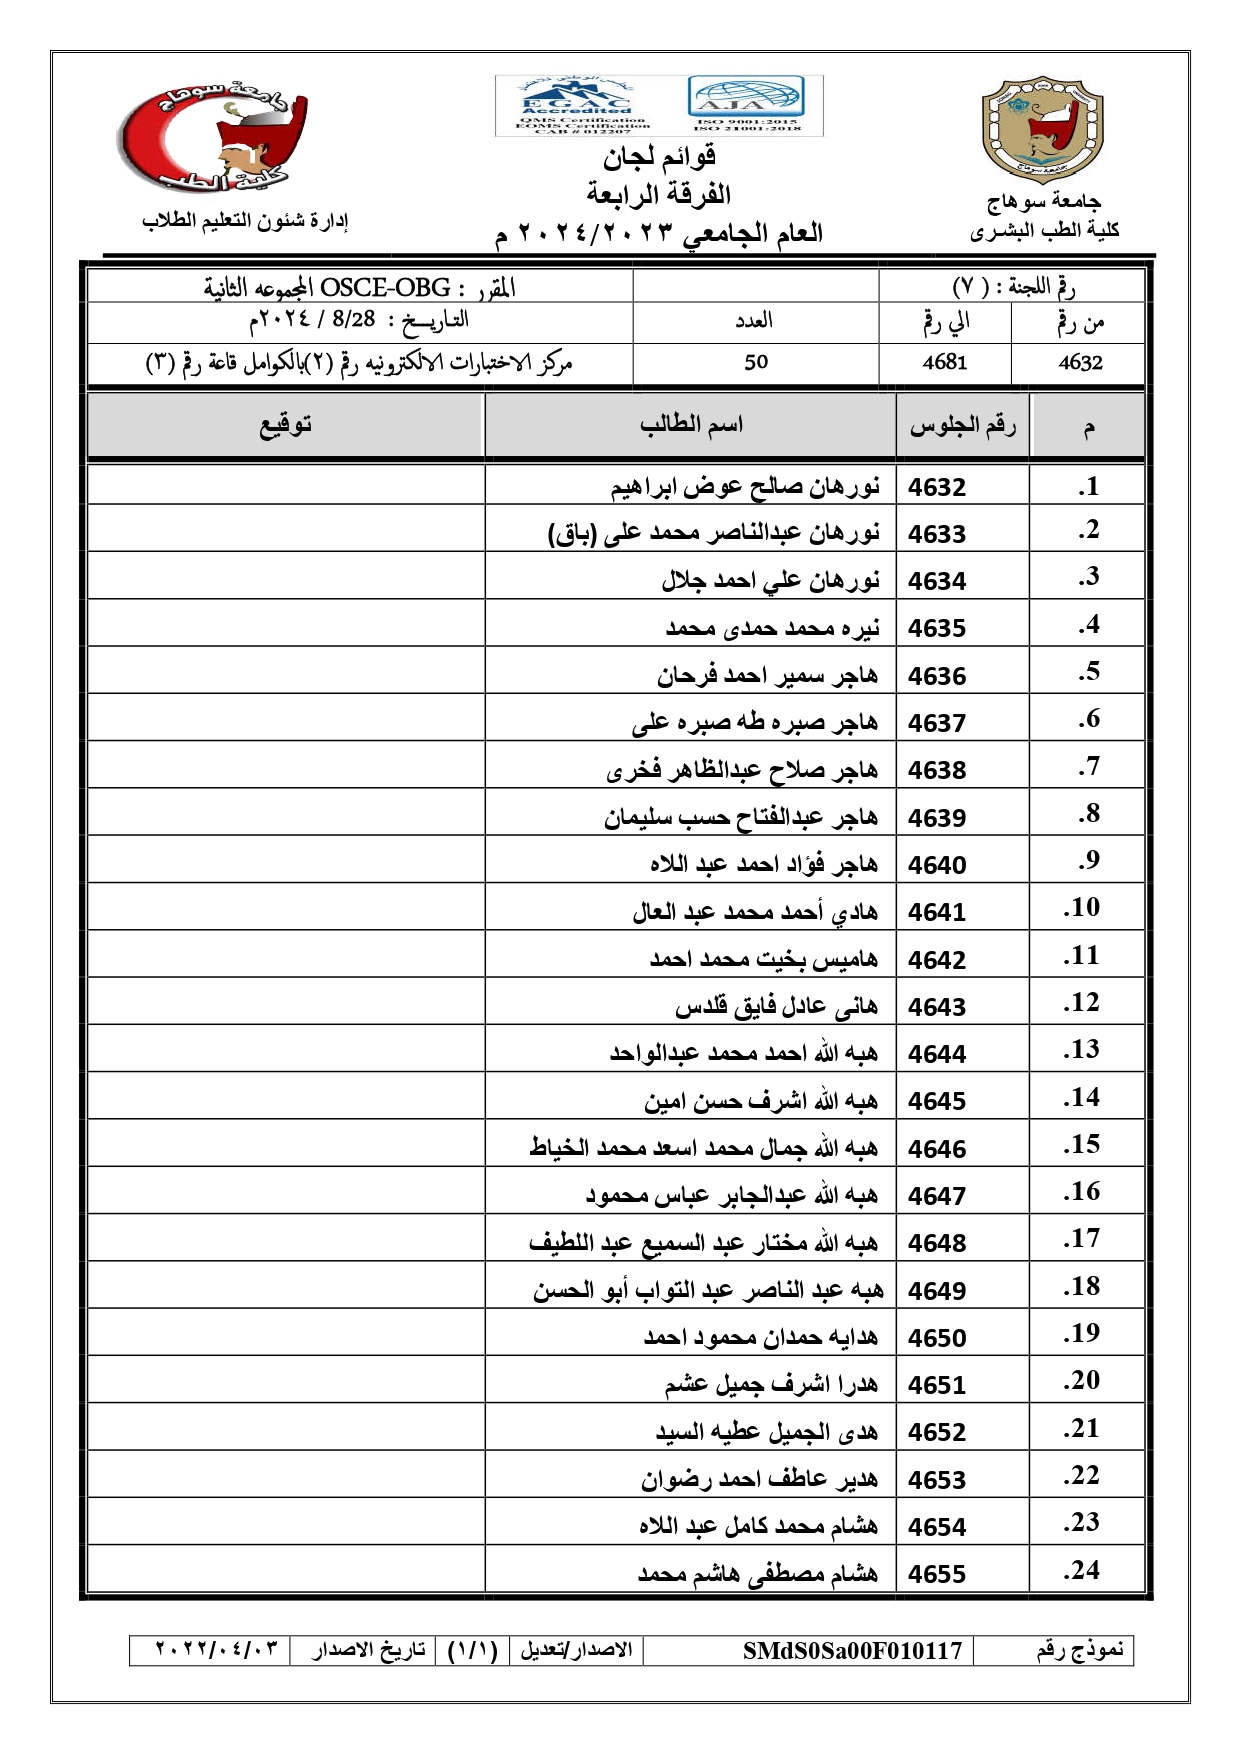 جامعة سوهاج
كلية الطب
إدارة شئون التعليم الطلاب
EGAC
Accredited
QMS Certification
EOMS Certification
CAB # 012207
AJA
ISO 9001:2015
ISO 21001:2018
قوائم لجان
الفرقة الرابعة
العام الجامعي ٢٠٢٤/٢٠٢٣ م
جامعة سوهاج
جامعة سوهاج
كلية الطب البشرى
رقم اللجنة : ( ٧) المقرر : OSCE-OBG المجموعه الثانية
من رقم الي رقم العدد التاريـــخ : 8/28 / ٢٠٢٤م
4632 4681 50 مركز الاختبارات الالكترونيه رقم (٢)بالكوامل قاعة رقم (٣)
م رقم الجلوس اسم الطالب توقيع
1. 4632 نورهان صالح عوض ابراهيم
2. 4633 نورهان عبدالناصر محمد على (باق)
3. 4634 نورهان علي احمد جلال
4. 4635 نيره محمد حمدى محمد
5. 4636 هاجر سمير احمد فرحان
6. 4637 هاجر صبره طه صبره على
7. 4638 هاجر صلاح عبدالظاهر فخرى
8. 4639 هاجر عبدالفتاح حسب سليمان
9. 4640 هاجر فؤاد احمد عبد اللاه
10. 4641 هادي أحمد محمد عبد العال
11. 4642 هاميس بخيت محمد احمد
12. 4643 هانى عادل فايق قلدس
13. 4644 هبه الله احمد محمد عبدالواحد
14. 4645 هبه الله اشرف حسن امين
15. 4646 هبه الله جمال محمد اسعد محمد الخياط
16. 4647 هبه الله عبدالجابر عباس محمود
17. 4648 هبه الله مختار عبد السميع عبد اللطيف
18. 4649 هبه عبد الناصر عبد التواب أبو الحسن
19. 4650 هدايه حمدان محمود احمد
20. 4651 هدرا اشرف جميل عشم
21. 4652 هدى الجميل عطيه السيد
22. 4653 هدير عاطف احمد رضوان
23. 4654 هشام محمد كامل عبد اللاه
24. 4655 هشام مصطفى هاشم محمد
نموذج رقم SMdS0Sa00F010117 الاصدار/تعديل (١/١) تاريخ الاصدار ٢٠٢٢/٠٤/٠٣